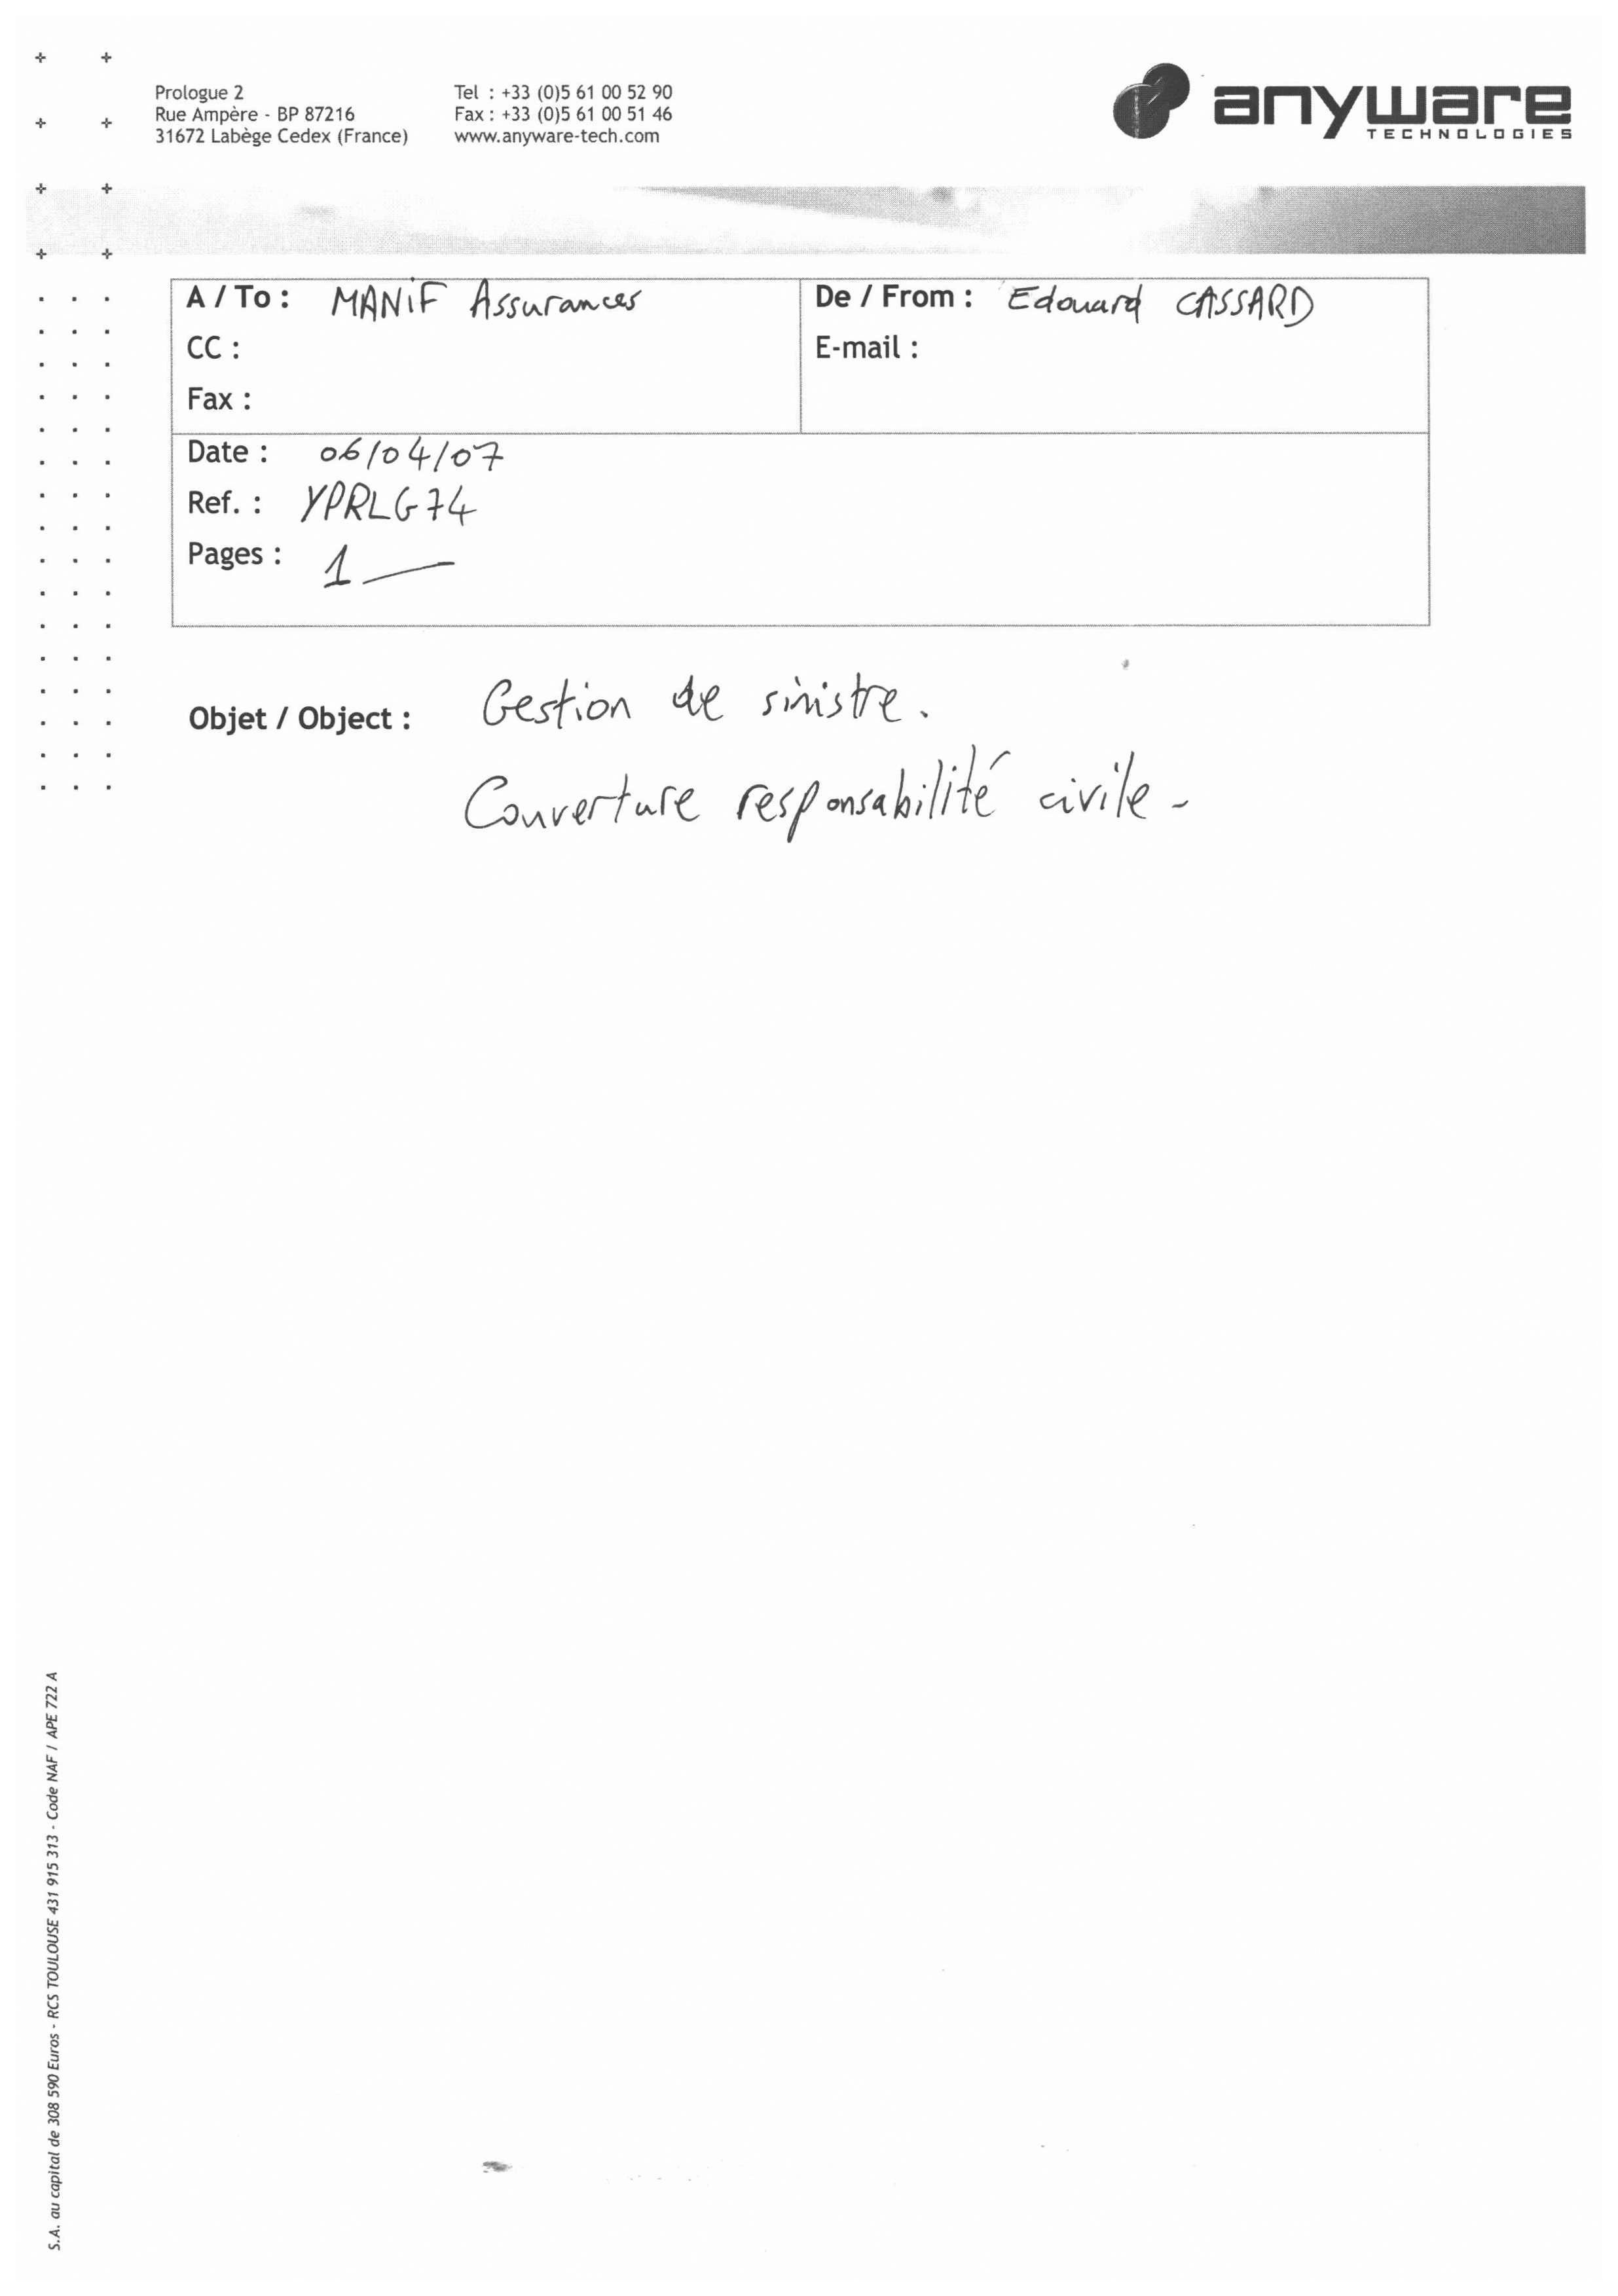 Prologue 2
Rue Ampère - BP 87216
31672 Labège Cedex (France)
Tel : +33 (0)5 61 00 52 90
Fax : +33 (0)5 61 00 51 46
www.anyware-tech.com
anyware
TECHNOLOGIES
A / To : MANIF Assurances
CC :
Fax :
De / From : Edouard CASSARD
E-mail :
Date : 06/04/07
Ref. : YPRLG74
Pages : 1
Objet / Object : Gestion de sinistre.
Couverture responsabilité civile -
S.A. au capital de 308 590 Euros - RCS TOULOUSE 431 915 313 - Code NAF / APE 722 A